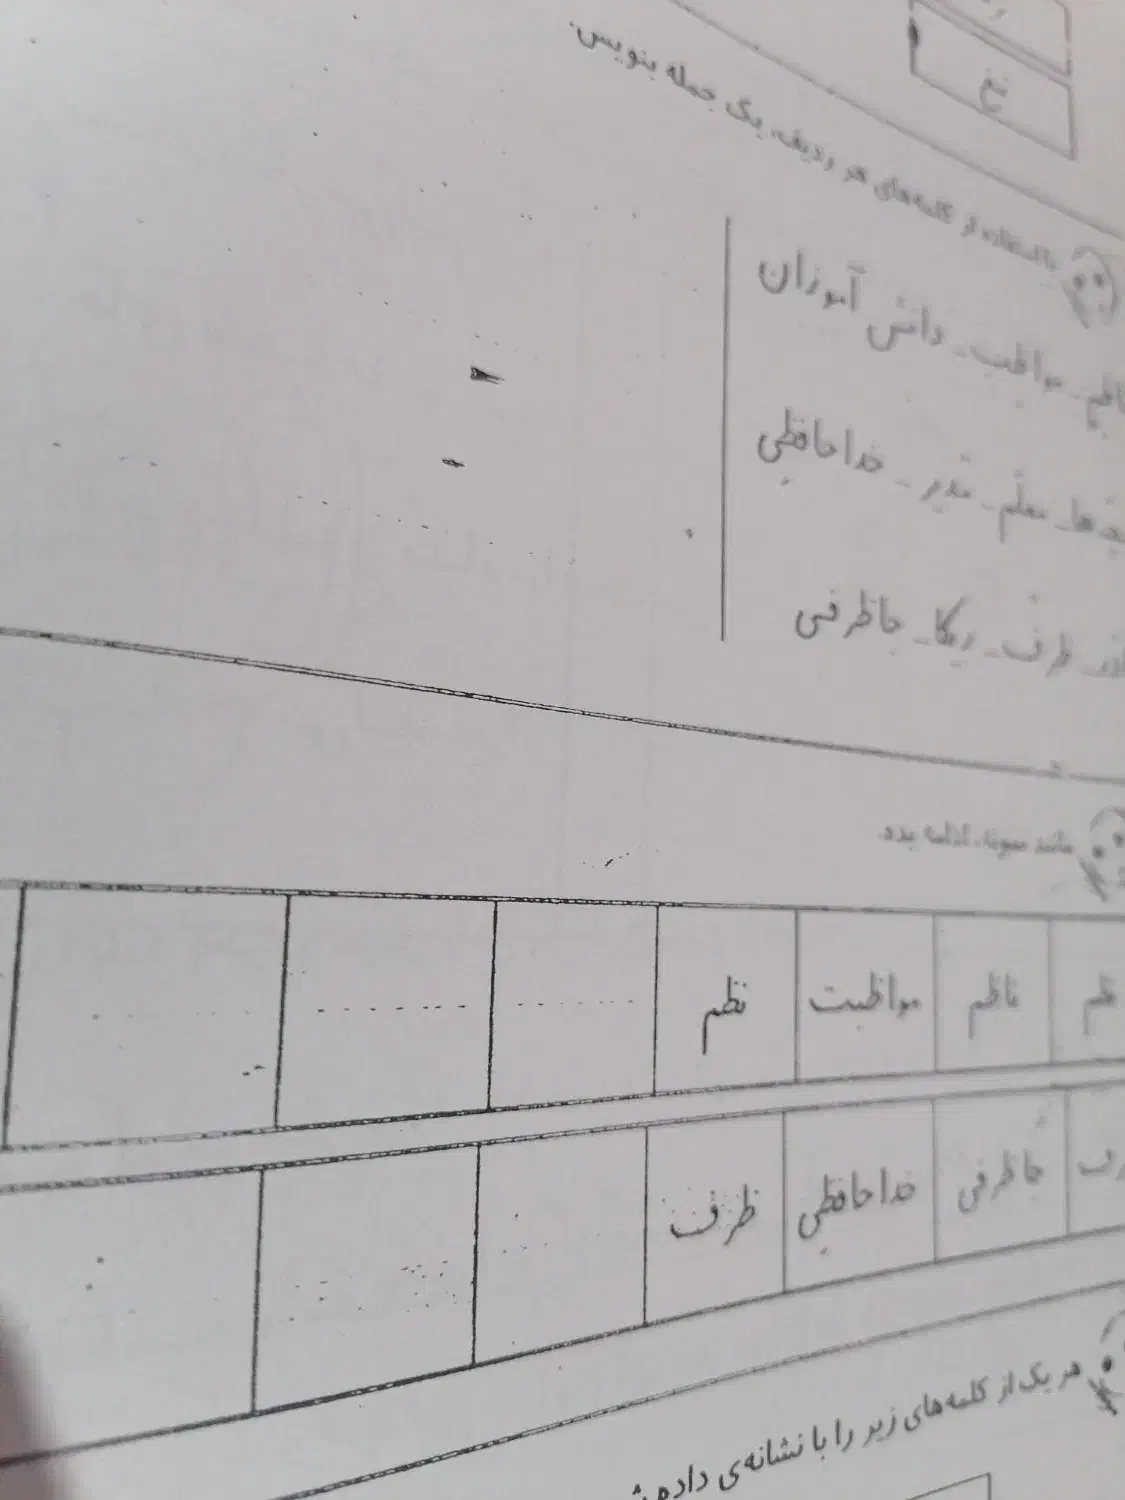 نخ
با استفاده از کلمه‌های هر ردیف، یک جمله بنویس.
ناظم - مواظب - دانش آموزان
بچه‌ها - معلم - مدیر - خداحافظی
مادر - ظرف - ریکا - جاظرفی
مانند نمونه، ادامه بده.
نظم ناظم مواظبت نظم
ظرف جاظرفی خداحافظی ظرف
هر یک از کلمه‌های زیر را با نشانه‌ی داده